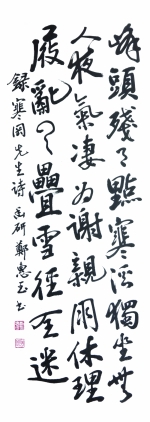 峰頭殘月點寒溪獨坐無
人夜氣凄為謝親朋休理
屐亂雲疊雪徑全迷
錄寒岡先生詩 研鄭惠玉書